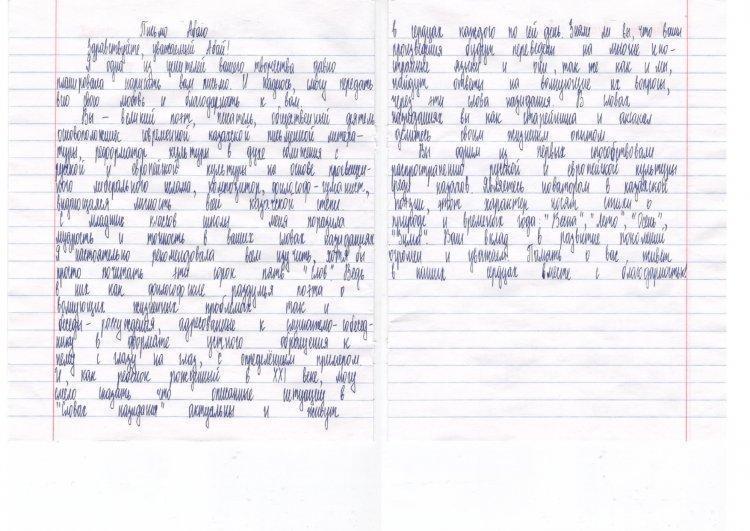 Письмо Абаю
Здравствуйте, уважаемый Абай!
Я одна из ценителей вашего творчества давно
планировала написать вам письмо. И надеюсь, смогу передать
всю свою любовь и благодарность к вам.
Вы – великий поэт, писатель, общественный деятель
основоположник современной казахской письменной литера-
туры, реформатор культуры в духе сближения с
русской и европейской культуры на основе просвещен-
ного либерального ислама, композитор, философ-гуманист,
выдающаяся личность всей казахской степи
С младших классов школы меня поразила
мудрость и точность в ваших словах назиданиях
Я настоятельно рекомендовала всем изучить, хотя бы
просто почитать это сорок пять "Слов". Ведь
в них как философские раздумья поэта о
волнующих жизненных проблемах так и
беседы-рассуждения, адресованные к слушателю-собесед-
нику в формате устного обращения к
нему с глазу на глаз, с определённым примером
И, как ребёнок рождённый в XXI веке, могу
смело сказать что описанные ситуации в
"Словах назидания" актуальны и живут
в сердцах каждого по сей день. Знали ли вы, что ваши
произведения будут переведены на многие ино-
странные языки и они, так же как и мы,
найдут ответы на волнующие их вопросы,
через эти слова назидания. В словах
назиданиях вы как старейшина и аксакал
делитесь своим жизненным опытом
Вы одним из первых способствовали
распространению русской и европейской культуры
среди казахов Являетесь новатором в казахской
поэзии, этот характер носят стихи о
природе и временах года: "Весна", "Лето", "Осень",
"Зима" Ваш вклад в развитие поколений
огромен и увлекателен Память о вас, живет
в наших сердцах вместе с благодарностью!